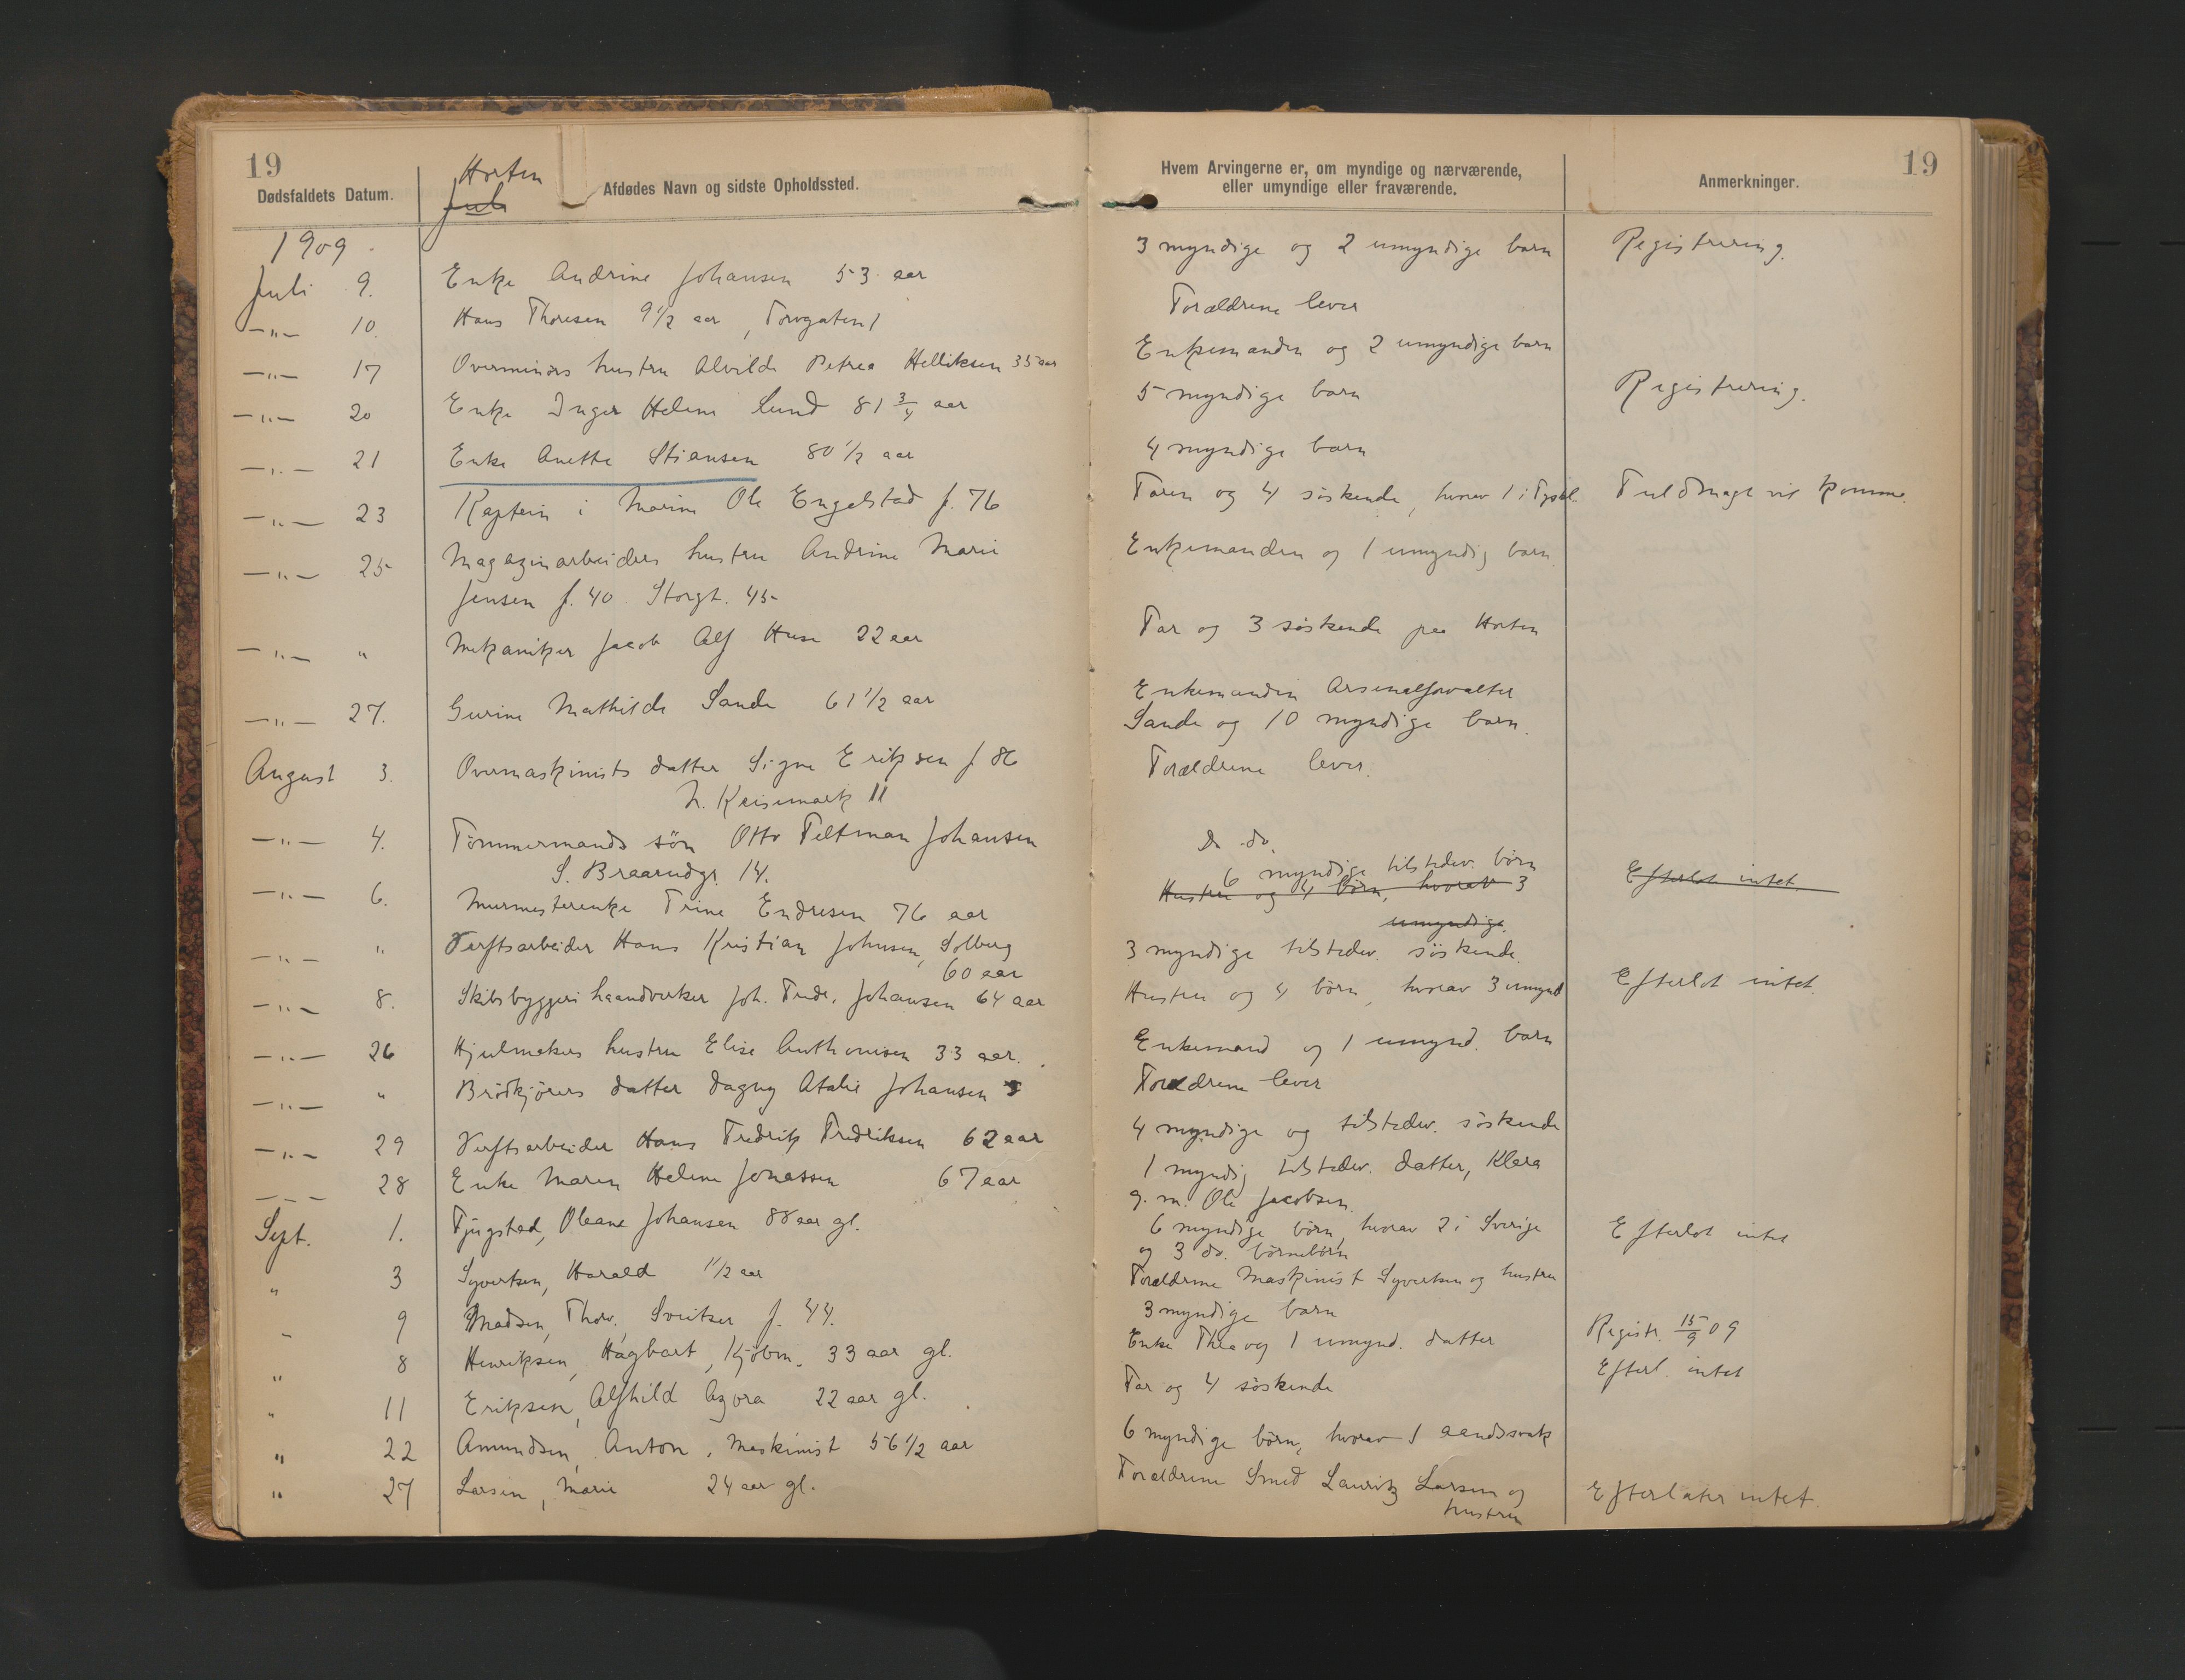 19
Dødsfaldets Datum.
Horten
Juli
Afdødes Navn og sidste Opholdssted.
Hvem Arvingerne er, om myndige og nærværende,
eller umyndige eller fraværende.
Anmerkninger.
19
1909.
Juli 9. Enke Andrine Johansen 53 aar 3 myndige og 2 umyndige barn Registrering.
—"— 10. Hans Thoresen 9 1/2 aar, Torvgaten 1 Forældrene lever
—"— 17 Overminørs hustru Alvilde Petrea Helliksen 35 aar Enkemanden og 2 umyndige barn
—"— 20 Enke Inger Helene Lund 81 3/4 aar 5 myndige barn Registrering.
—"— 21 Enke Anette Stiansen 80 1/2 aar 4 myndige barn
—"— 23 Kaptein i Marine Ole Engelstad f. 76 Faren og 4 søskende, hvorav 1 i Tyskl. Fuldmagt vil komme.
—"— 25 Magazinarbeiders hustru Andrine Marie Enkemanden og 1 umyndig barn
Jensen f. 40 Storgt. 45
—"— " Mekaniker Jacob Alf Huse 22 aar Far og 3 søskende paa Horten
—"— 27. Gurine Mathilde Sande 61 1/2 aar Enkemanden Arsenalforvalter
Sande og 10 myndige barn.
August 3. Overmaskinists datter Signe Eriksen f 86 Forældrene lever.
N. Keisemark 11
—"— 4. Tømmermands søn Otto Feltman Johansen Do do.
S. Braarudgt. 14.
6 myndige tilstedev. børn
—"— 6. Murmesterenke Trine Endresen 76 aar Hustru og 4 børn, hvorav 3 Efterlot intet
umyndige.
—"— " Verftsarbeider Hans Kristian Johnsen, Solberg 3 myndige tilstedev. søskende.
60 aar
—"— 8. Skibsbyggeri haandverker Joh. Fredr. Johansen 64 aar Hustru og 4 børn, hvorav 3 umynd Efterlot intet.
—"— 26 Hjulmakers hustru Elise Anthonisen 33 aar. Enkemand og 1 umynd. barn
—"— " Brødkjørers datter Dagny Atalie Johansen 5 Forældrene lever
—"— 29 Verftsarbeider Hans Fredrik Fredriksen 62 aar 4 myndige og tilstedev. søskende
— — — 28 Enke Maren Helene Jonassen 67 aar 1 myndig tilstedev. datter, Klara
g. m. Ole Jacobsen.
Sept. 1. Tjugstad, Oleane Johansen 88 aar gl. 6 myndige børn, hvorav 2 i Sverige Efterlot intet
og 3 do. børnebørn
" 3 Syvertsen, Harald 1 1/2 aar Forældrene Maskinist Syvertsen og hustru
" 9 Madsen, Thorv. Sveitser f. 44. 3 myndige barn Registr. 15/9 09
" 8 Henriksen, Hagbart, Kjøbm. 33 aar gl. Enke Thea og 1 umynd. datter Efterl. intet
" 11 Eriksen, Alfhild Agora 22 aar gl. Far og 4 søskende
" 22 Amundsen, Anton, Maskinist 56 1/2 aar 6 myndige børn, hvorav 1 aandssvak
" 27 Larsen, Marie 24 aar gl. Forældrene Smed Lauritz Larsen og Efterlater intet.
hustru